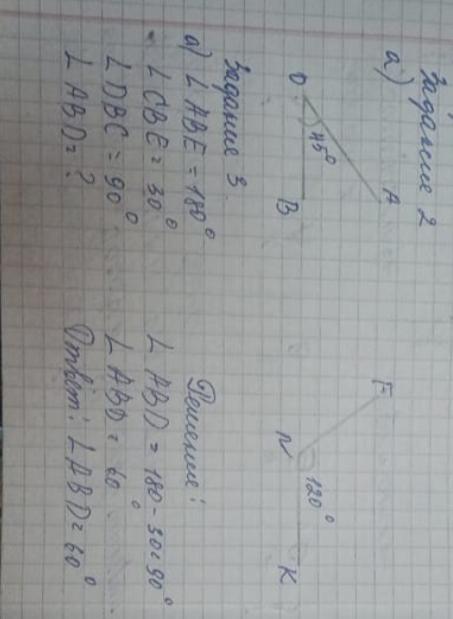 Задание 2
а)
А
О 45° В
F
N 120° K
Задание 3.
а) ∠ABE = 180°
∠CBE = 30°
∠DBC = 90°
∠ABD = ?
Решение:
∠ABD = 180-30-90°
∠ABD = 60°
Ответ: ∠ABD = 60°